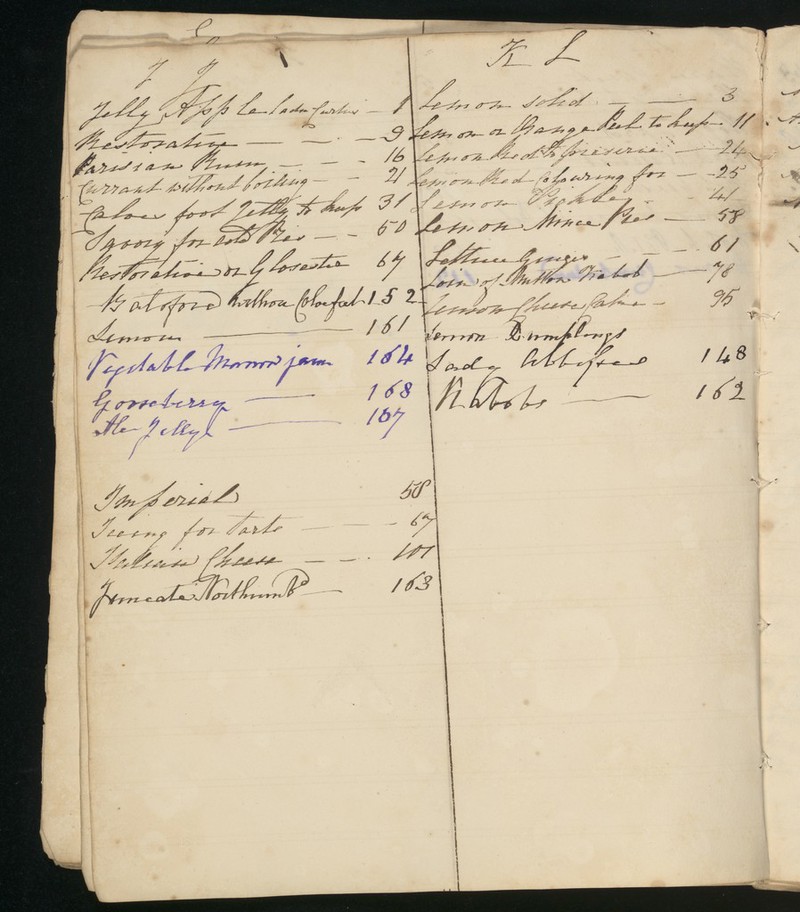 I J
Jelly Apple Lady 1
Restorative 9
Parisian Rum 16
Currant without boiling 21
Calves foot Jelly to keep 31
Savory for cold Pies 50
Restorative or Gloucester 67
152
Lemon 161
Vegetable Marrow jam 164
Gooseberry 168
Ale Jelly 167
Imperial 58
Iceing for Tarts 67
Italian Cheese 101
Juncate Northumbd 163
K L
Lemon solid 3
Lemon or Orange Peel to keep 11
Lemon to preserve 24
Lemon Red Colouring for 25
Lemon Pickle 41
Lemon Mince Pies 58
Lettuce Ginger 61
Loin of Mutton Kebob 78
Lemon Cheese Cake 95
Lemon Dumplings
Lady 148
Kabobs 162